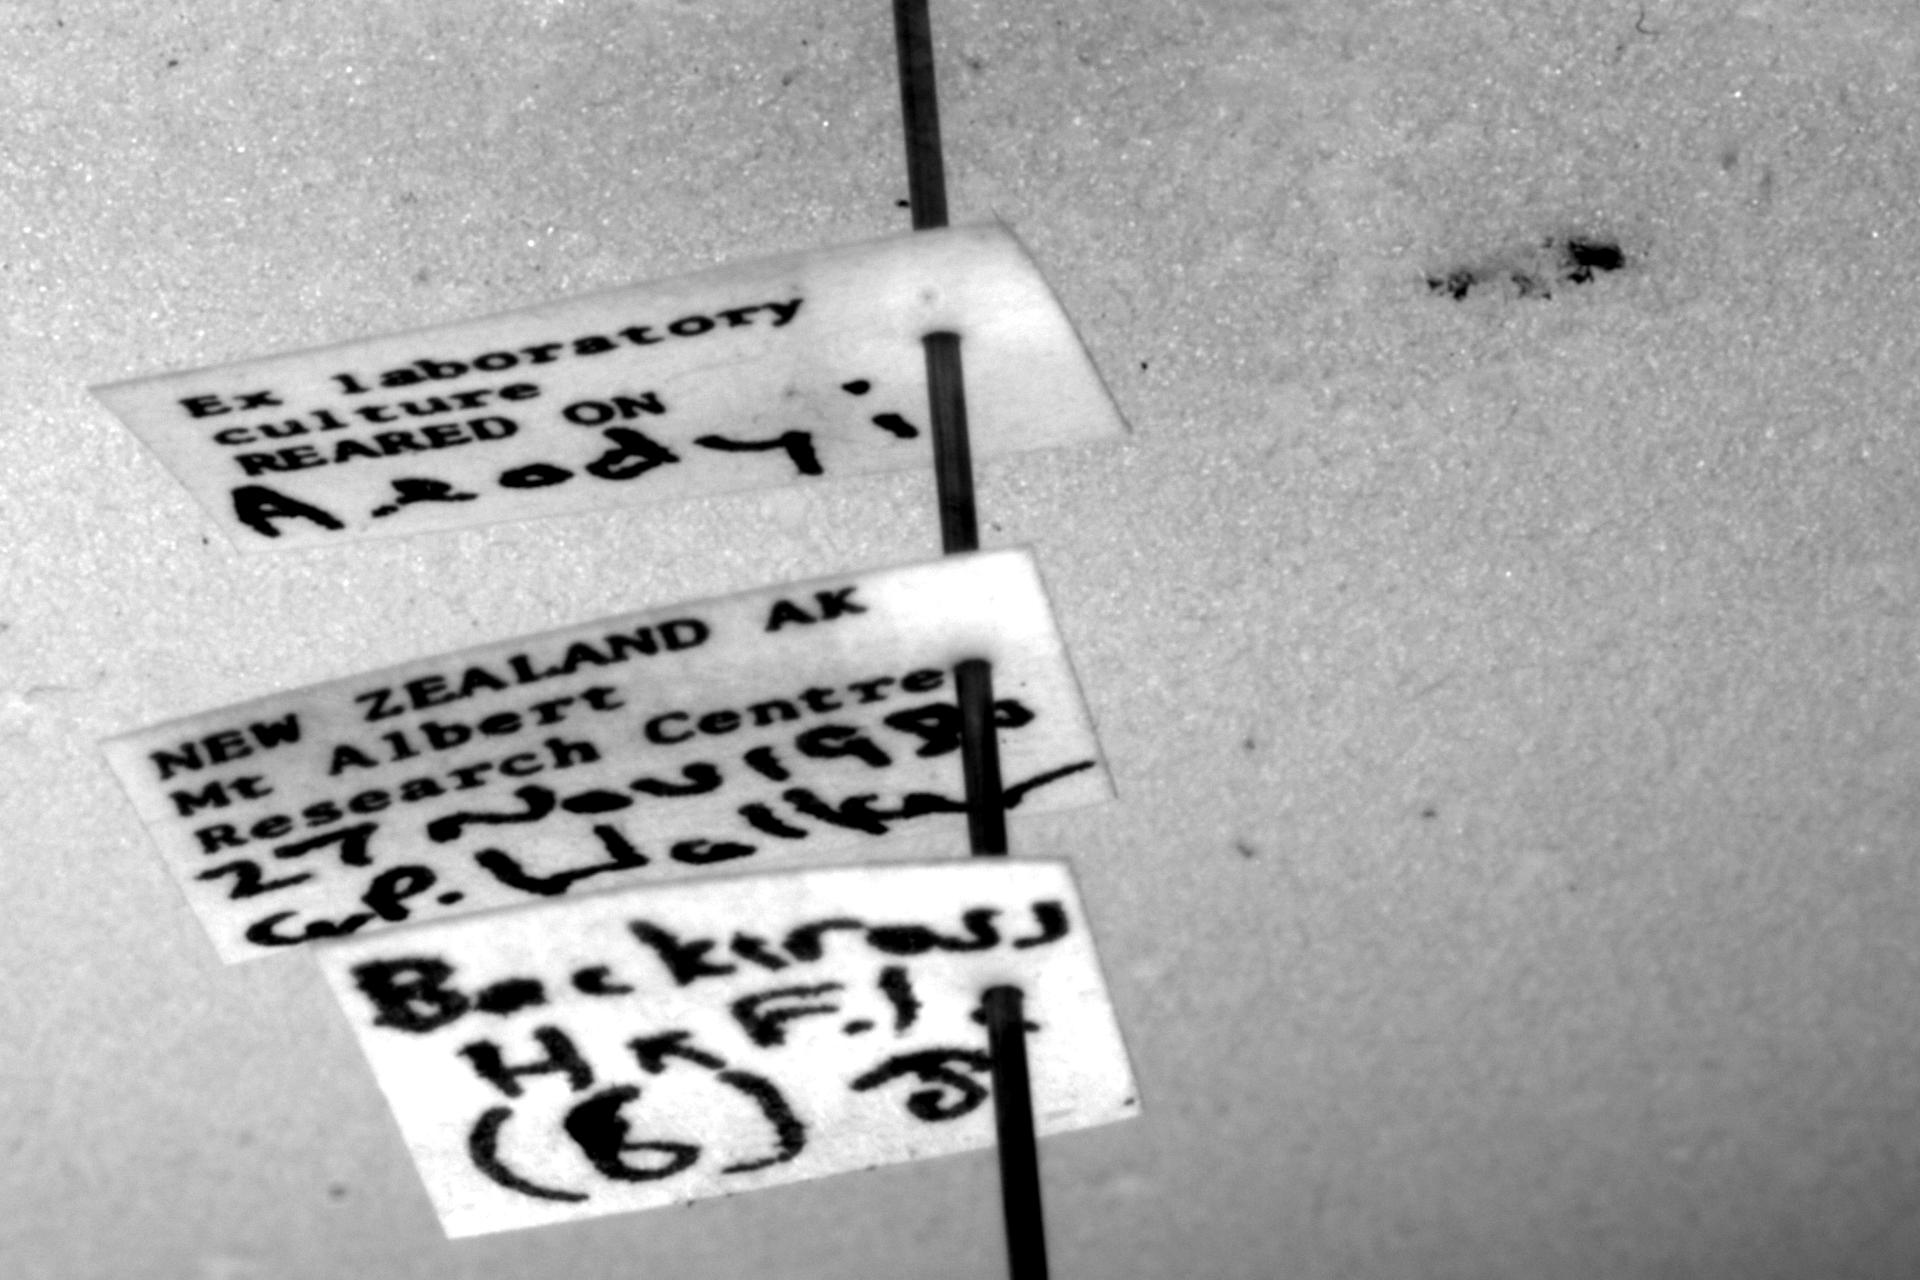 Ex laboratory
culture
REARED ON
NEW ZEALAND AK
Mt Albert
Research Centre
27 Nov
G.P. Walker
Backcross
H x F.1.
(6)